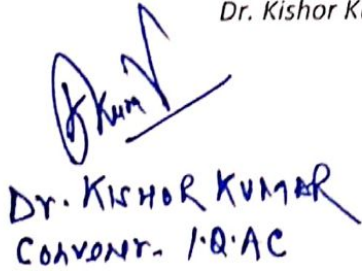 Dr. Kishor K
Kum
Dr. KISHOR KUMAR
Convenr. I.Q.AC